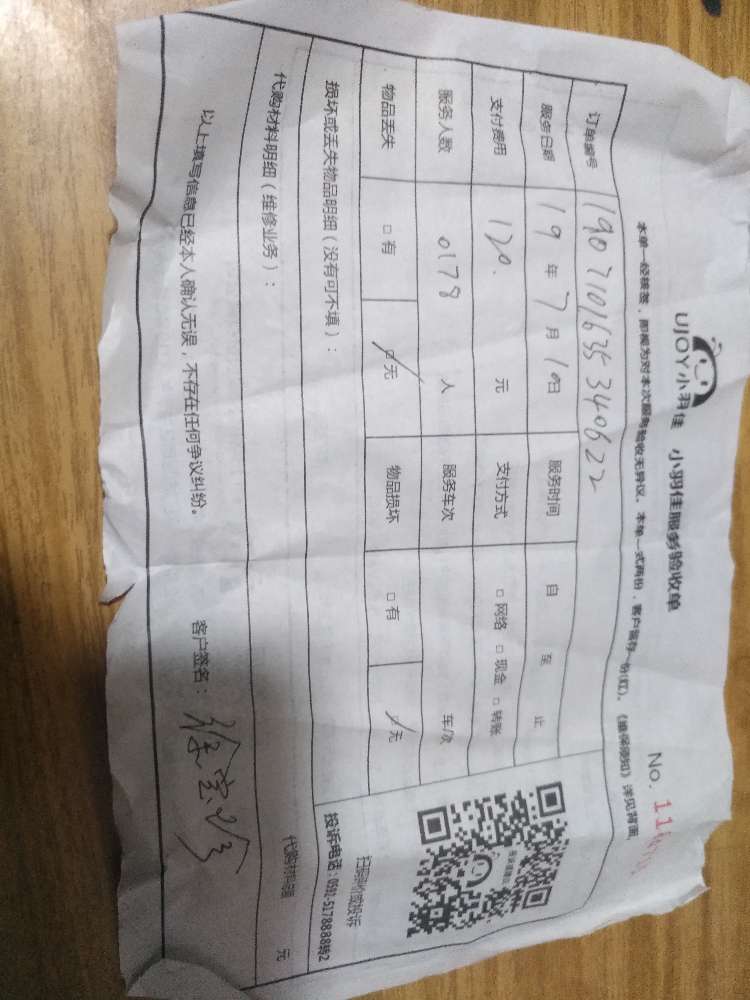 UJOY小羽佳 小羽佳服务验收单
No. 11
本单一经核签，即视为对本次服务验收无异议。本单一式两份，客户留存一份(红)。《维保须知》详见背面
订单编号 11907101635340622
服务日期 19年7月10日 服务时间 自 至 止
支付费用 120. 元 支付方式 □网络 □现金 □转账
服务人数 0178 人 服务车次 车/次
物品丢失 □有 □无 物品损坏 □有 □无
损坏或丢失物品明细（没有可不填）：
扫码评价或投诉
投诉电话：0592-5178888转2
代购材料明细（维修业务）：
代购材料费 元
以上填写信息已经本人确认无误，不存在任何争议纠纷。 客户签名：